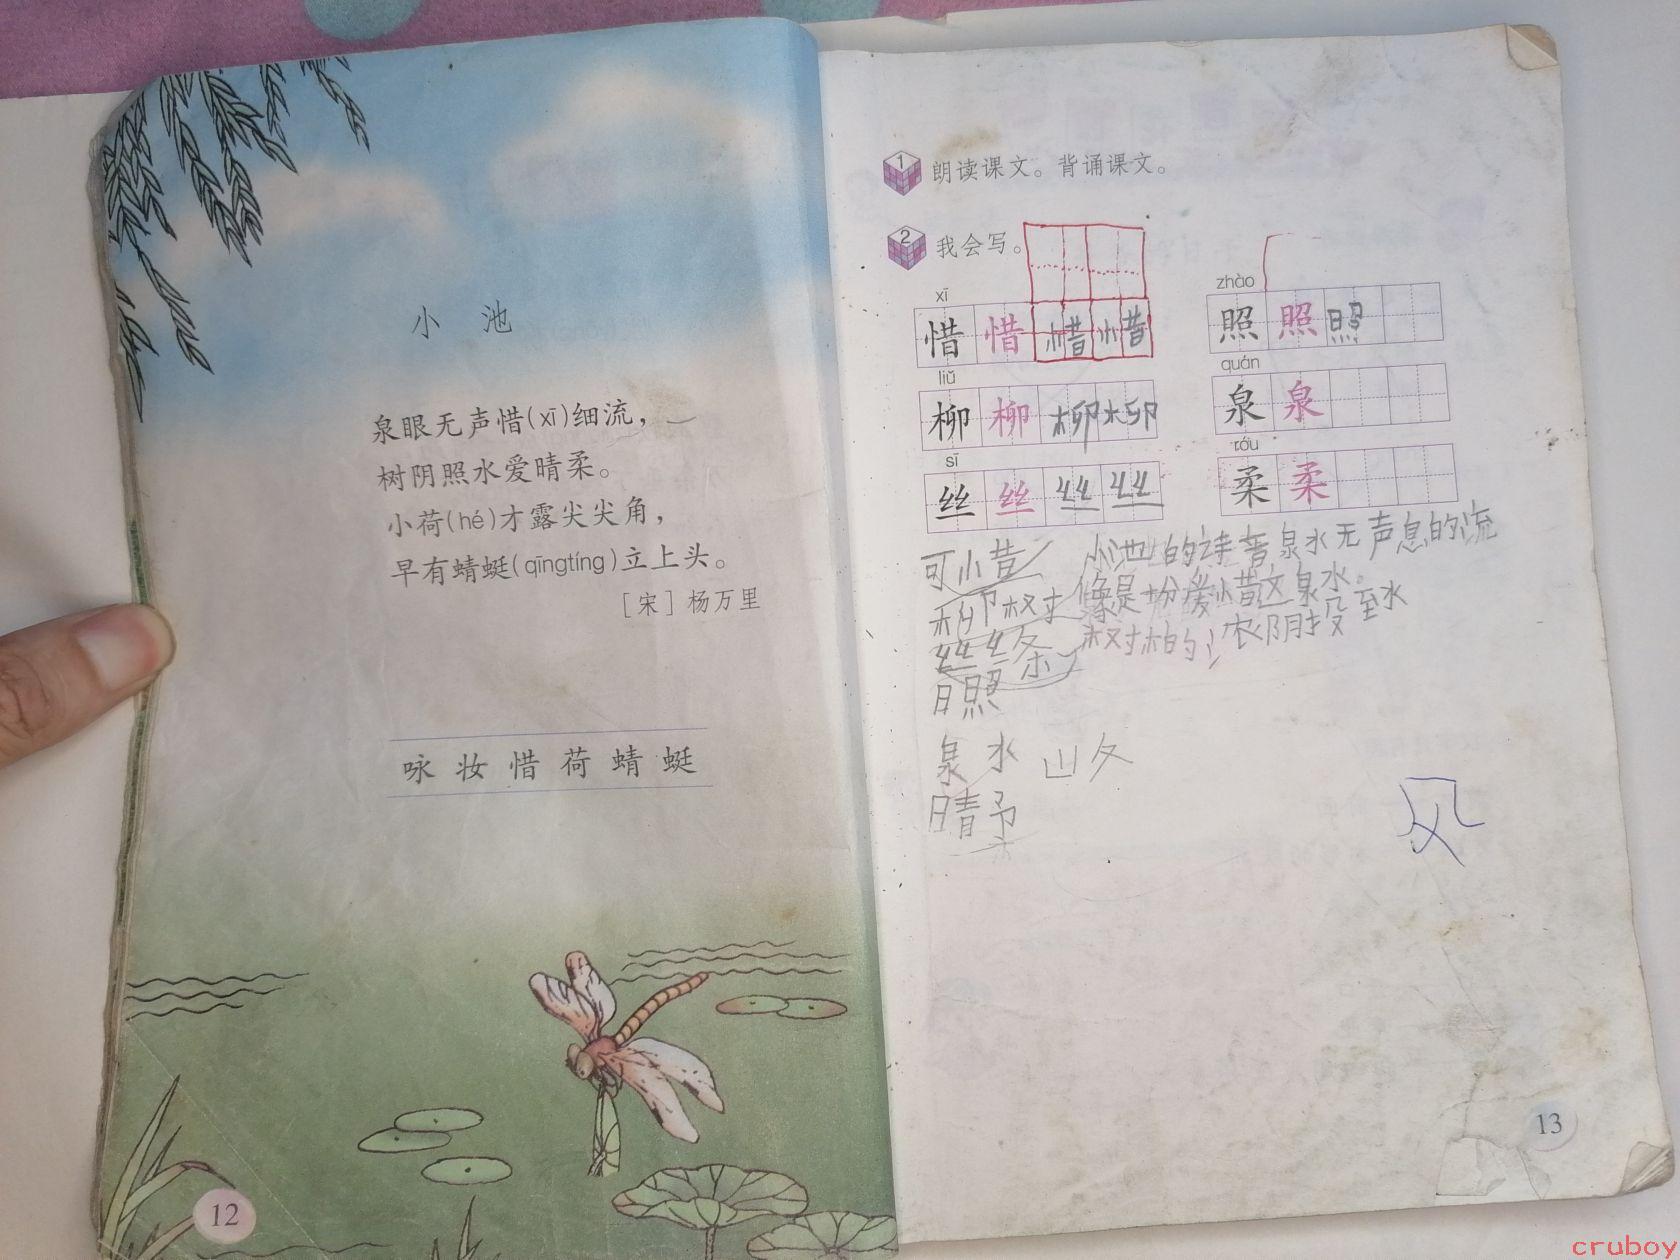 小 池
泉眼无声惜(xī)细流，
树阴照水爱晴柔。
小荷(hé)才露尖尖角，
早有蜻蜓(qīngtíng)立上头。
[宋] 杨万里
咏 妆 惜 荷 蜻 蜓
12
1 朗读课文。背诵课文。
2 我会写。
xī
惜 惜 惜 惜
liǔ
柳 柳 柳 柳
sī
丝 丝 丝 丝
zhào
照 照 照
quán
泉 泉
róu
柔 柔
可惜
柳树
丝条
日照
泉水
晴柔
小池的诗 泉水无声息的流
像是 爱惜这泉水。
树 的 阴投至水
风
13
cruboy